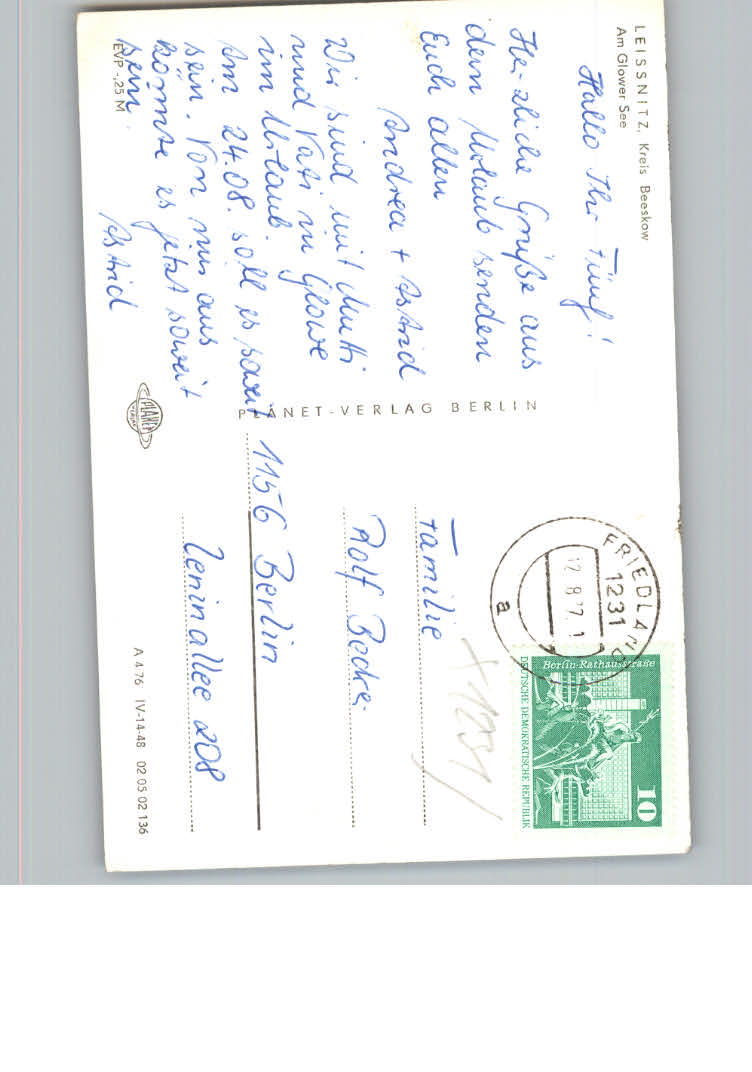 LEISSNITZ, Kreis Beeskow
Am Glower See
Hallo Ihr Fünf!
Herzliche Grüße aus
dem Urlaub senden
Euch allen
Andrea + Astrid
Wir sind mit Mutti
und Vati in Glowe
im Urlaub.
Am 24.08. soll es soweit
sein. Von mir aus
könnte es jetzt soweit
sein.
Astrid
EVP -,25 M
PLANET-VERLAG BERLIN
PLANET
VERLAG
FRIEDLAND
1231
a
Berlin-Rathausstraße
DEUTSCHE DEMOKRATISCHE REPUBLIK
10
1231
Familie
Rolf Becker
1156 Berlin
Leninallee 208
A 4 76 IV-14-48 02 05 02 136